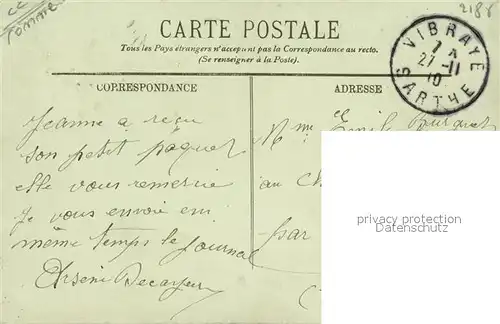 CARTE POSTALE
Tous les Pays étrangers n'acceptent pas la Correspondance au recto.
(Se renseigner à la Poste).
VIBRAYE
7 A
27-11
10
SARTHE
CORRESPONDANCE
ADRESSE
Jeanne a reçu
son petit paquet
elle vous remercie
Je vous envoie en
même temps le Journal
Mme Emile
au
par
privacy protection
Datenschutz